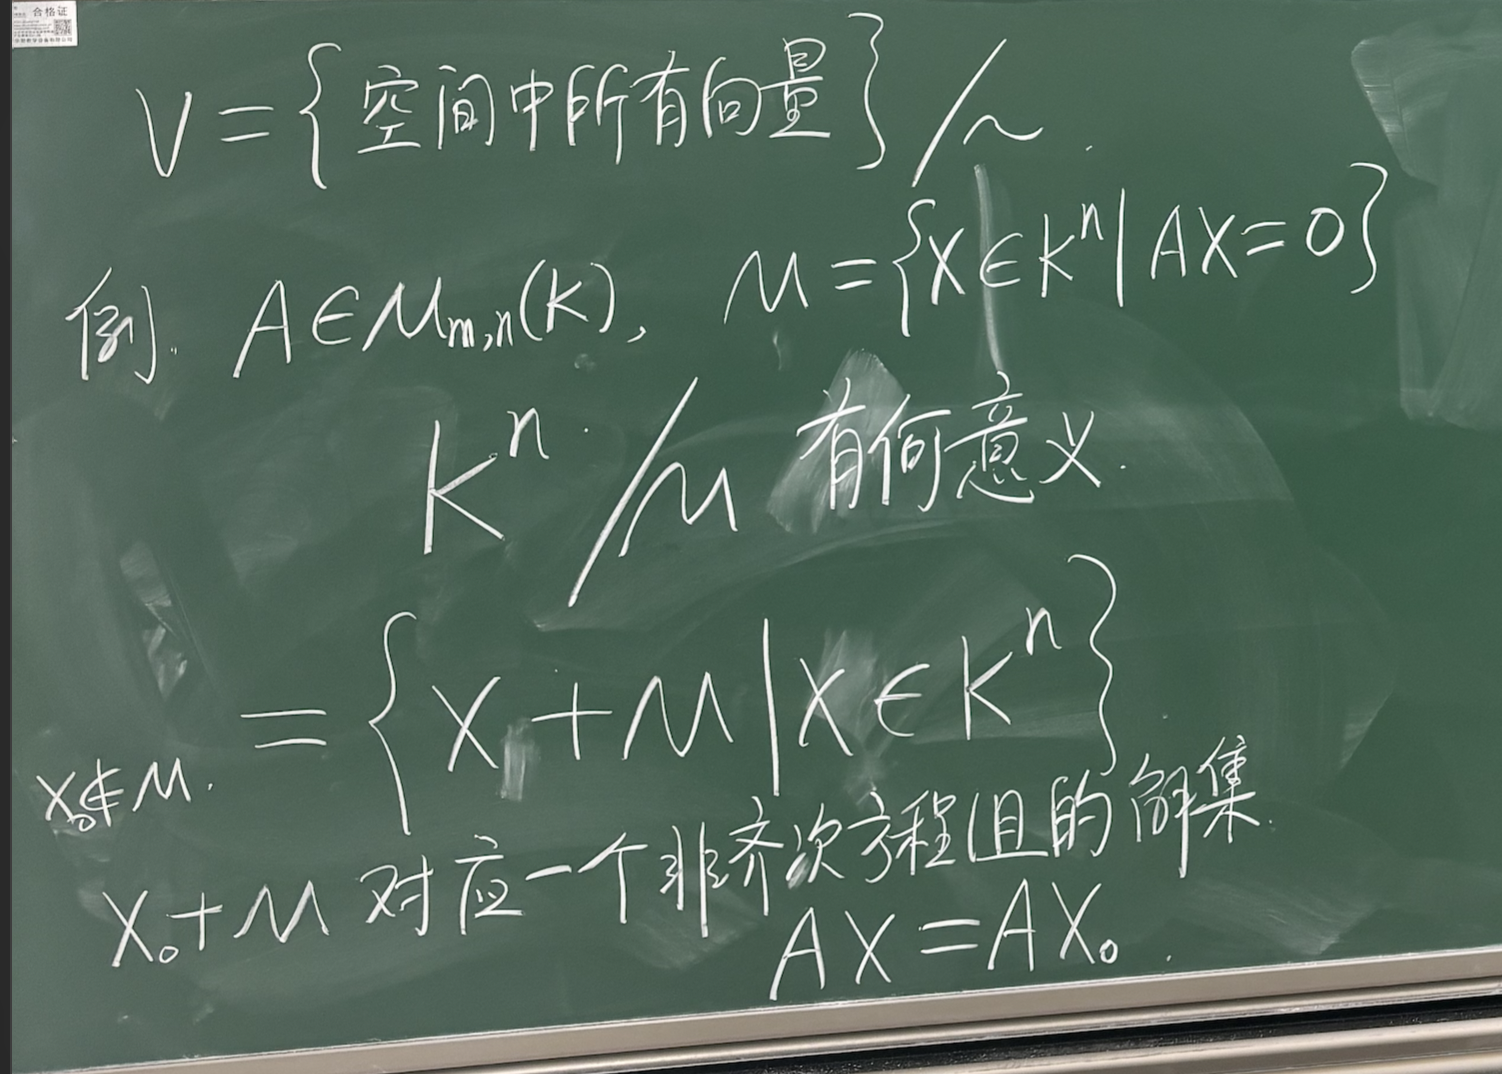 合格证
V = {空间中所有向量} / ~ .
例. A ∈ M_{m,n}(K), M = {X ∈ K^n | AX = 0}
K^n / M 有何意义.
= {X + M | X ∈ K^n}
X_0 ∉ M.
X_0 + M 对应一个非齐次方程组的解集.
AX = AX_0.